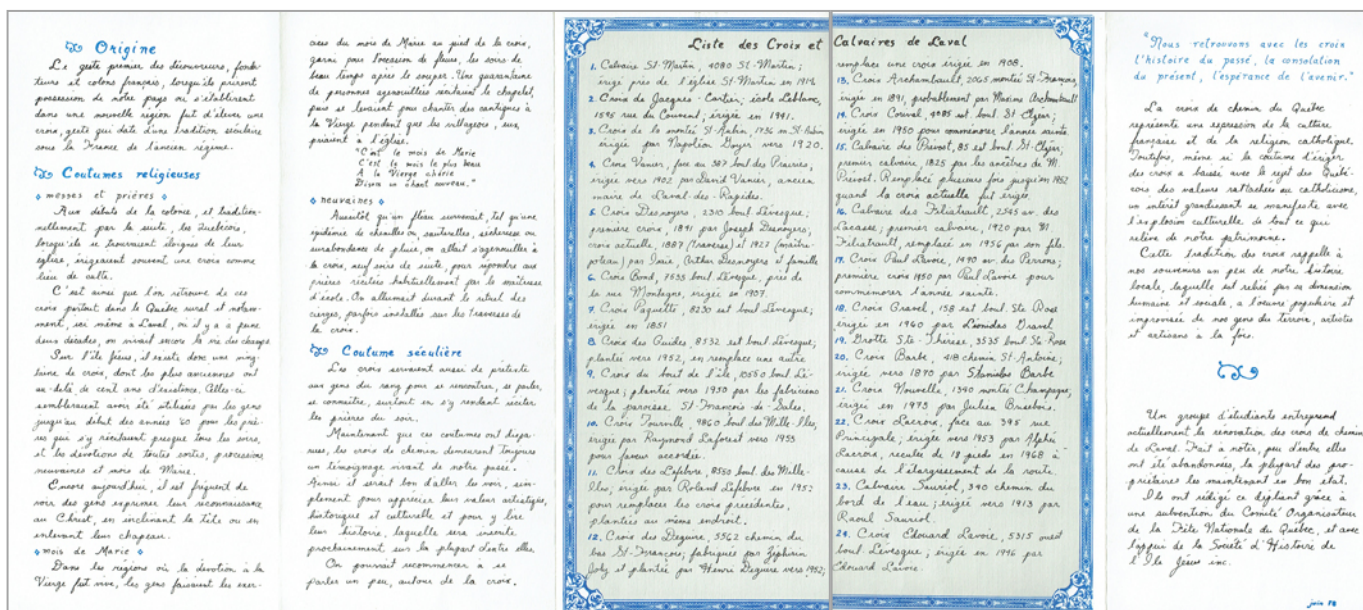 Origine
Le geste premier des découvreurs, fonda-
teurs et colons français, lorsqu'ils prirent
possession de notre pays ou s'établirent
dans une nouvelle région fut d'élever une
croix, geste qui date d'une tradition séculaire
sous la France de l'ancien régime.
Coutumes religieuses
messes et prières
Aux débuts de la colonie, et tradition-
nellement par la suite, les Québécois,
lorsqu'ils se trouvaient éloignés de leur
église, érigeaient souvent une croix comme
lieu de culte.
C'est ainsi que l'on retrouve de ces
croix partout dans le Québec rural et notam-
ment, ici même à Laval, où il y a à peine
deux décades, on vivait encore la vie des champs.
Sur l'île Jésus, il existe donc une ving-
taine de croix, dont les plus anciennes ont
au-delà de cent ans d'existence. Celles-ci
sembleraient avoir été utilisées par les gens
jusqu'au début des années '60 pour les priè-
res qui s'y récitaient presque tous les soirs,
et les dévotions de toutes sortes, processions,
neuvaines et mois de Marie.
Encore aujourd'hui, il est fréquent de
voir des gens exprimer leur reconnaissance
au Christ, en inclinant la tête ou en
enlevant leur chapeau.
mois de Marie
Dans les régions où la dévotion à la
Vierge fut vive, les gens faisaient les exer-
cices du mois de Marie au pied de la croix,
garni pour l'occasion de fleurs, les soirs de
beau temps après le souper. Une quarantaine
de personnes agenouillées récitaient le chapelet,
puis se levaient pour chanter des cantiques à
la Vierge pendant que les villageois, eux,
priaient à l'église.
"C'est le mois de Marie
C'est le mois le plus beau
A la Vierge chérie
Disons un chant nouveau."
neuvaines
Aussitôt qu'un fléau survenait, tel qu'une
épidémie de chenilles ou, sauterelles, sécheresse ou
surabondance de pluie, on allait s'agenouiller à
la croix, neuf soirs de suite, pour répondre aux
prières récitées habituellement par la maîtresse
d'école. On allumait durant le rituel des
cierges, parfois installés sur les traverses de
la croix.
Coutume séculière
Les croix servaient aussi de prétexte
aux gens du rang pour se rencontrer, se parler,
se connaître, surtout en s'y rendant réciter
les prières du soir.
Maintenant que ces coutumes ont dispa-
rues, les croix de chemin demeurent toujours
un témoignage vivant de notre passé.
Aussi il serait bon d'aller les voir, sim-
plement pour apprécier leur valeur artistique,
historique et culturelle et pour y lire
leur histoire, laquelle sera inscrite
prochainement sur la plupart d'entre elles.
On pourrait recommencer à se
parler un peu, autour de la croix.
Liste des Croix et
1. Calvaire St-Martin, 4080 St-Martin;
érigé près de l'église St-Martin en 1914
2. Croix de Jacques-Cartier; école Leblanc,
1595 rue du Couvent; érigée en 1941.
3. Croix de la montée St-Aubin, 1736 m. St-Aubin
érigée par Napoléon Goyer vers 1920.
4. Croix Vanier, face au 387 boul. des Prairies;
érigée vers 1902 par David Vanier, ancien
maire de Laval-des-Rapides.
5. Croix Desnoyers, 2310 boul. Lévesque;
première croix, 1841 par Joseph Desnoyers;
croix actuelle, 1887 (traverse) et 1927 (maître-
poteau) par Imie, Arthur Desnoyers et famille
6. Croix Bond, 7635 boul. Lévesque, près de
la rue Montagne, érigée en 1937.
7. Croix Paquette, 8230 est boul. Lévesque;
érigée en 1851
8. Croix des Guides, 8532 est boul. Lévesque;
plantée vers 1952, en remplace une autre
9. Croix du bout de l'île, 10550 boul. Lé-
vesque; plantée vers 1950 par les fabriciens
de la paroisse St-François-de-Sales.
10. Croix Tourville, 9860 boul. des Mille-Iles,
érigée par Raymond Laforest vers 1953
pour faveur accordée.
11. Croix des Lefebvre, 8550 boul. des Mille-
Iles; érigée par Roland Lefebvre en 1952
pour remplacer les croix précédentes,
plantées au même endroit.
12. Croix des Deguire, 5562 chemin du
bas St-François; fabriquée par Zéphirin
Joly et plantée par Henri Deguire vers 1952;
Calvaires de Laval
remplace une croix érigée en 1908.
13. Croix Archambault, 2065 montée St-François,
érigée en 1891, probablement par Maxime Archambault
14. Croix Corval, 4085 est boul. St-Elzéar;
érigée en 1950 pour commémorer l'année sainte.
15. Calvaire des Prévost, 85 est boul. St-Elzéar;
premier calvaire, 1825 par les ancêtres de M.
Prévost. Remplacé plusieurs fois jusqu'en 1952
quand la croix actuelle fut érigée.
16. Calvaire des Filiatrault, 2545 av. des
Lacasse; premier calvaire, 1920 par M.
Filiatrault, remplacé en 1956 par son fils.
17. Croix Paul Lavoie, 1490 av. des Perrons;
première croix 1950 par Paul Lavoie pour
commémorer l'année sainte.
18. Croix Gravel, 158 est boul. Ste-Rose
érigée en 1960 par Léonidas Gravel
19. Grotte Ste-Thérèse, 3535 boul. Ste-Rose
20. Croix Barbe, 418 chemin St-Antoine;
érigée vers 1870 par Stanislas Barbe
21. Croix Nouvelle, 1390 montée Champagne;
érigée en 1973 par Julien Brisebois.
22. Croix Lacroix, face au 395 rue
Principale; érigée vers 1953 par Alphée
Lacroix, reculée de 18 pieds en 1968 à
cause de l'élargissement de la route.
23. Calvaire Sauriol, 390 chemin du
bord de l'eau; érigée vers 1913 par
Raoul Sauriol.
24. Croix Edouard Lavoie, 5315 ouest
boul. Lévesque; érigée en 1946 par
Edouard Lavoie.
"Nous retrouvons avec les croix
l'histoire du passé, la consolation
du présent, l'espérance de l'avenir."
La croix de chemin du Québec
représente une expression de la culture
française et de la religion catholique.
Toutefois, même si la coutume d'ériger
des croix a baissé avec le rejet des Québé-
cois des valeurs rattachées au catholicisme,
un intérêt grandissant se manifeste avec
l'explosion culturelle, de tout ce qui
relève de notre patrimoine.
Cette tradition des croix rappelle à
nos souvenirs un peu de notre histoire
locale, laquelle est reliée par sa dimension
humaine et sociale, à l'oeuvre populaire et
improvisée de nos gens du terroir, artistes
et artisans à la fois.
Un groupe d'étudiants entreprend
actuellement la rénovation des croix de chemin
de Laval. Fait à noter, peu d'entre elles
ont été abandonnées, la plupart des pro-
priétaires les maintenant en bon état.
Ils ont rédigé ce dépliant grâce à
une subvention du Comité Organisateur
de la Fête Nationale du Québec, et avec
l'appui de la Société d'Histoire de
l'Ile Jésus inc.
juin 78